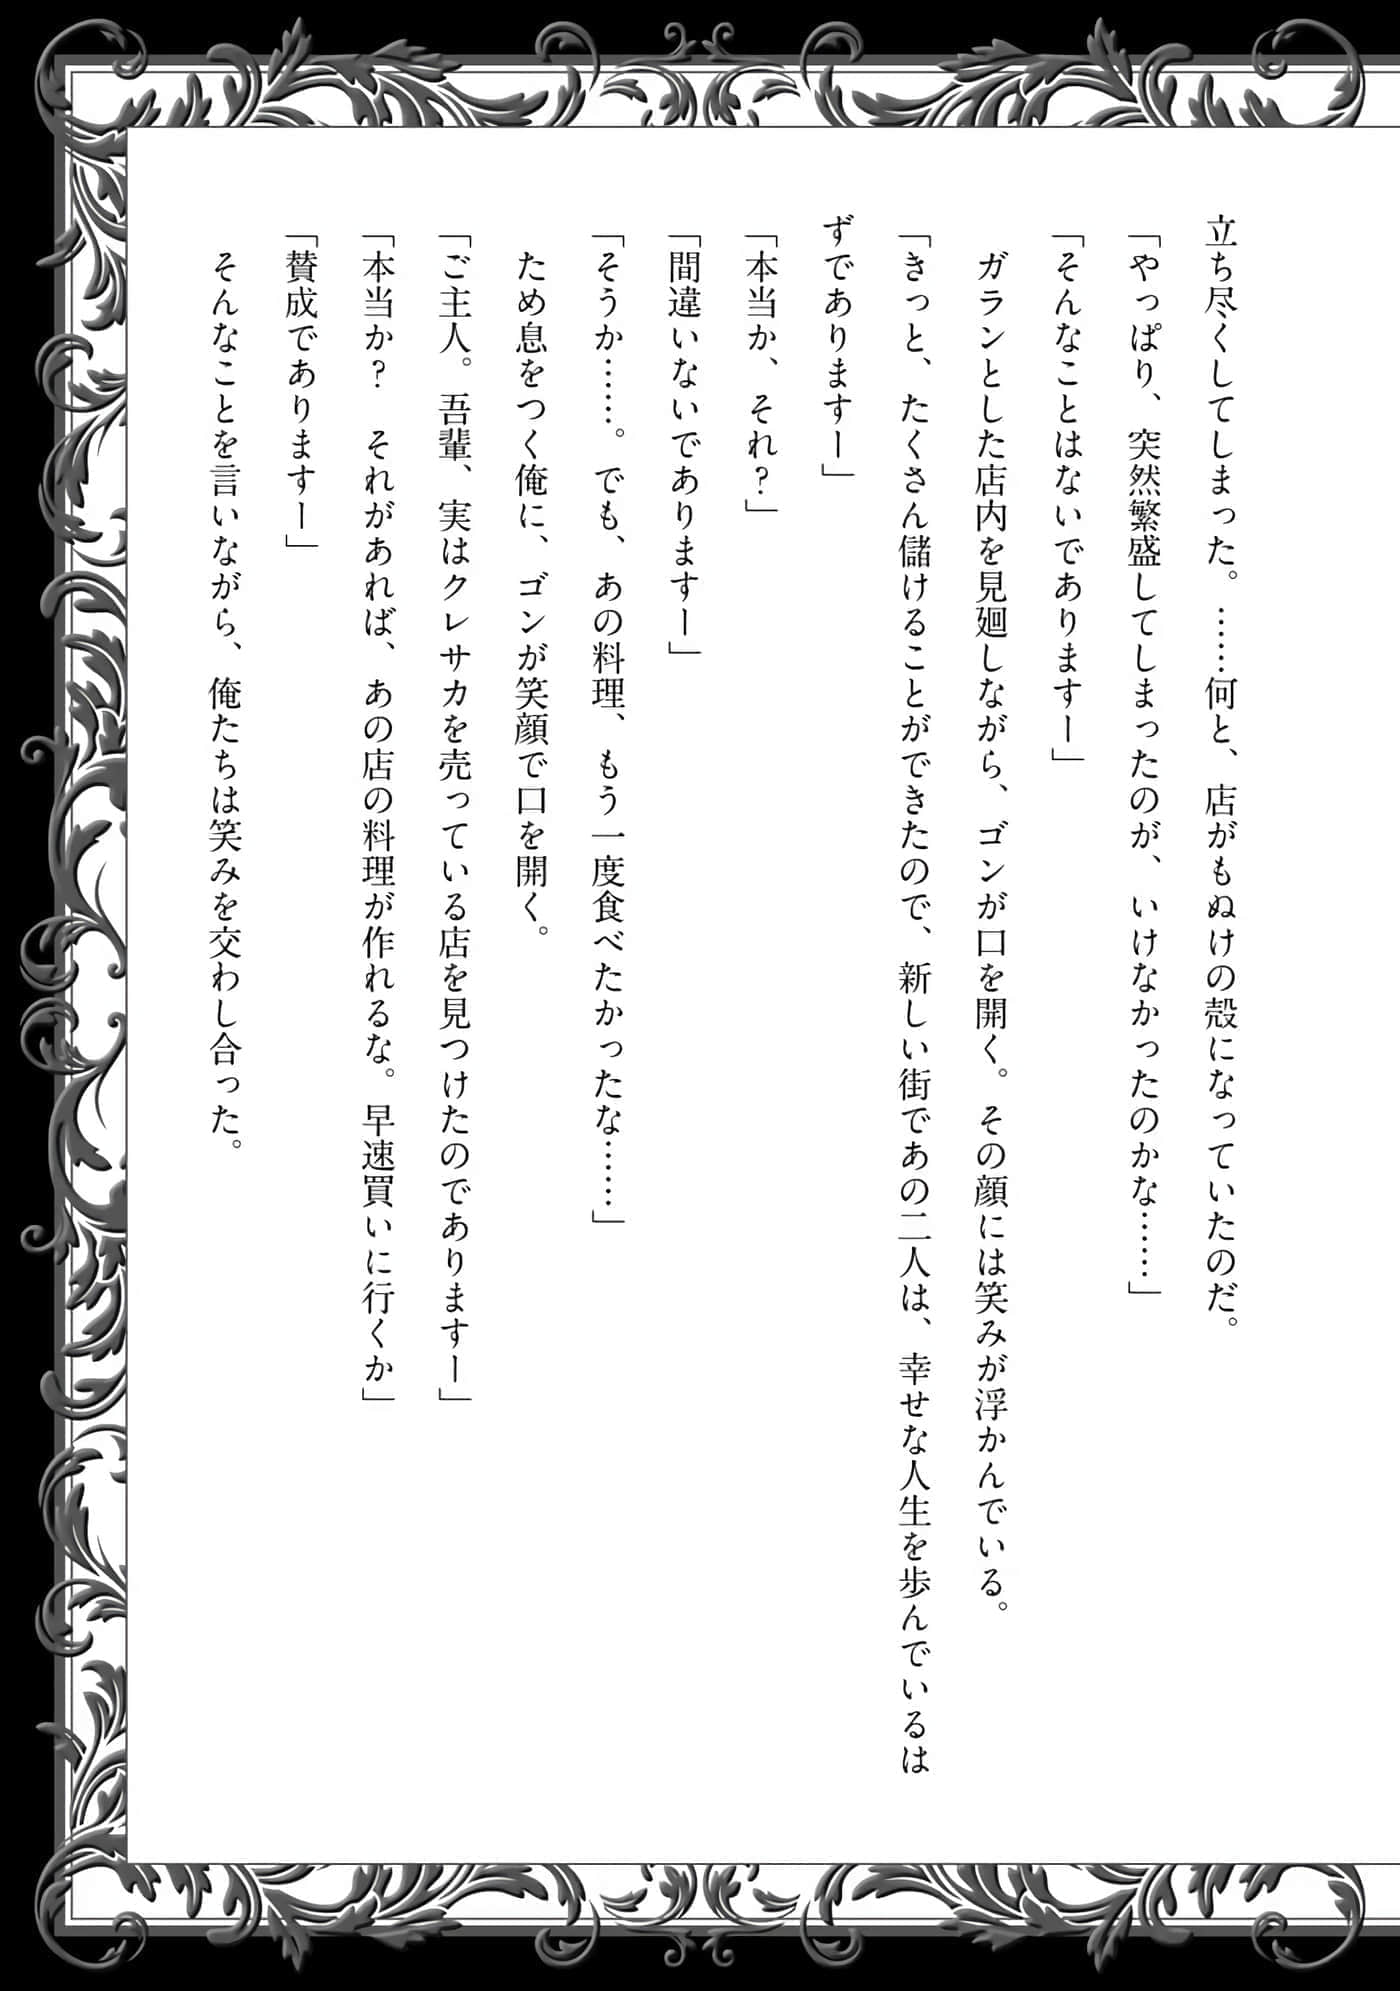 立ち尽くしてしまった。……何と、店がもぬけの殻になっていたのだ。
「やっぱり、突然繁盛してしまったのが、いけなかったのかな……」
「そんなことはないでありますー」
ガランとした店内を見廻しながら、ゴンが口を開く。その顔には笑みが浮かんでいる。
「きっと、たくさん儲けることができたので、新しい街であの二人は、幸せな人生を歩んでいるは
ずでありますー」
「本当か、それ?」
「間違いないでありますー」
「そうか……。でも、あの料理、もう一度食べたかったな……」
ため息をつく俺に、ゴンが笑顔で口を開く。
「ご主人。吾輩、実はクレサカを売っている店を見つけたのでありますー」
「本当か?　それがあれば、あの店の料理が作れるな。早速買いに行くか」
「賛成でありますー」
そんなことを言いながら、俺たちは笑みを交わし合った。